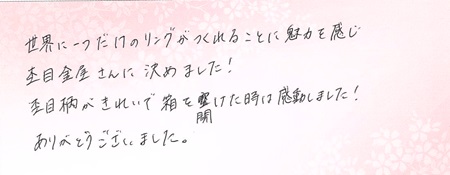 世界に一つだけのリングがつくれることに魅力を感じ
杢目金屋さんに決めました!
杢目柄がきれいで箱を開けた時は感動しました!
ありがとうございました。